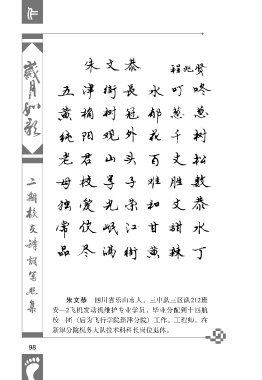 岁月如歌
二期校友诗词写照集
朱文恭 程兆贤
五津街长水叮咚
黄桷树冠郁葱葱
纯阳观外花千树
老君山头百丈松
母校学子难胜数
独爱光荣和文恭
常饮岷江毕甘甜水
品尽满街黄辣丁
朱文恭 四川省乐山市人，三中队三区队212班
安—2飞机发动机维护专业学员，毕业分配到十四航
校一团（后为飞行学院新津分院）工作，工程师，在
新津分院机务大队技术科科长岗位退休。
98